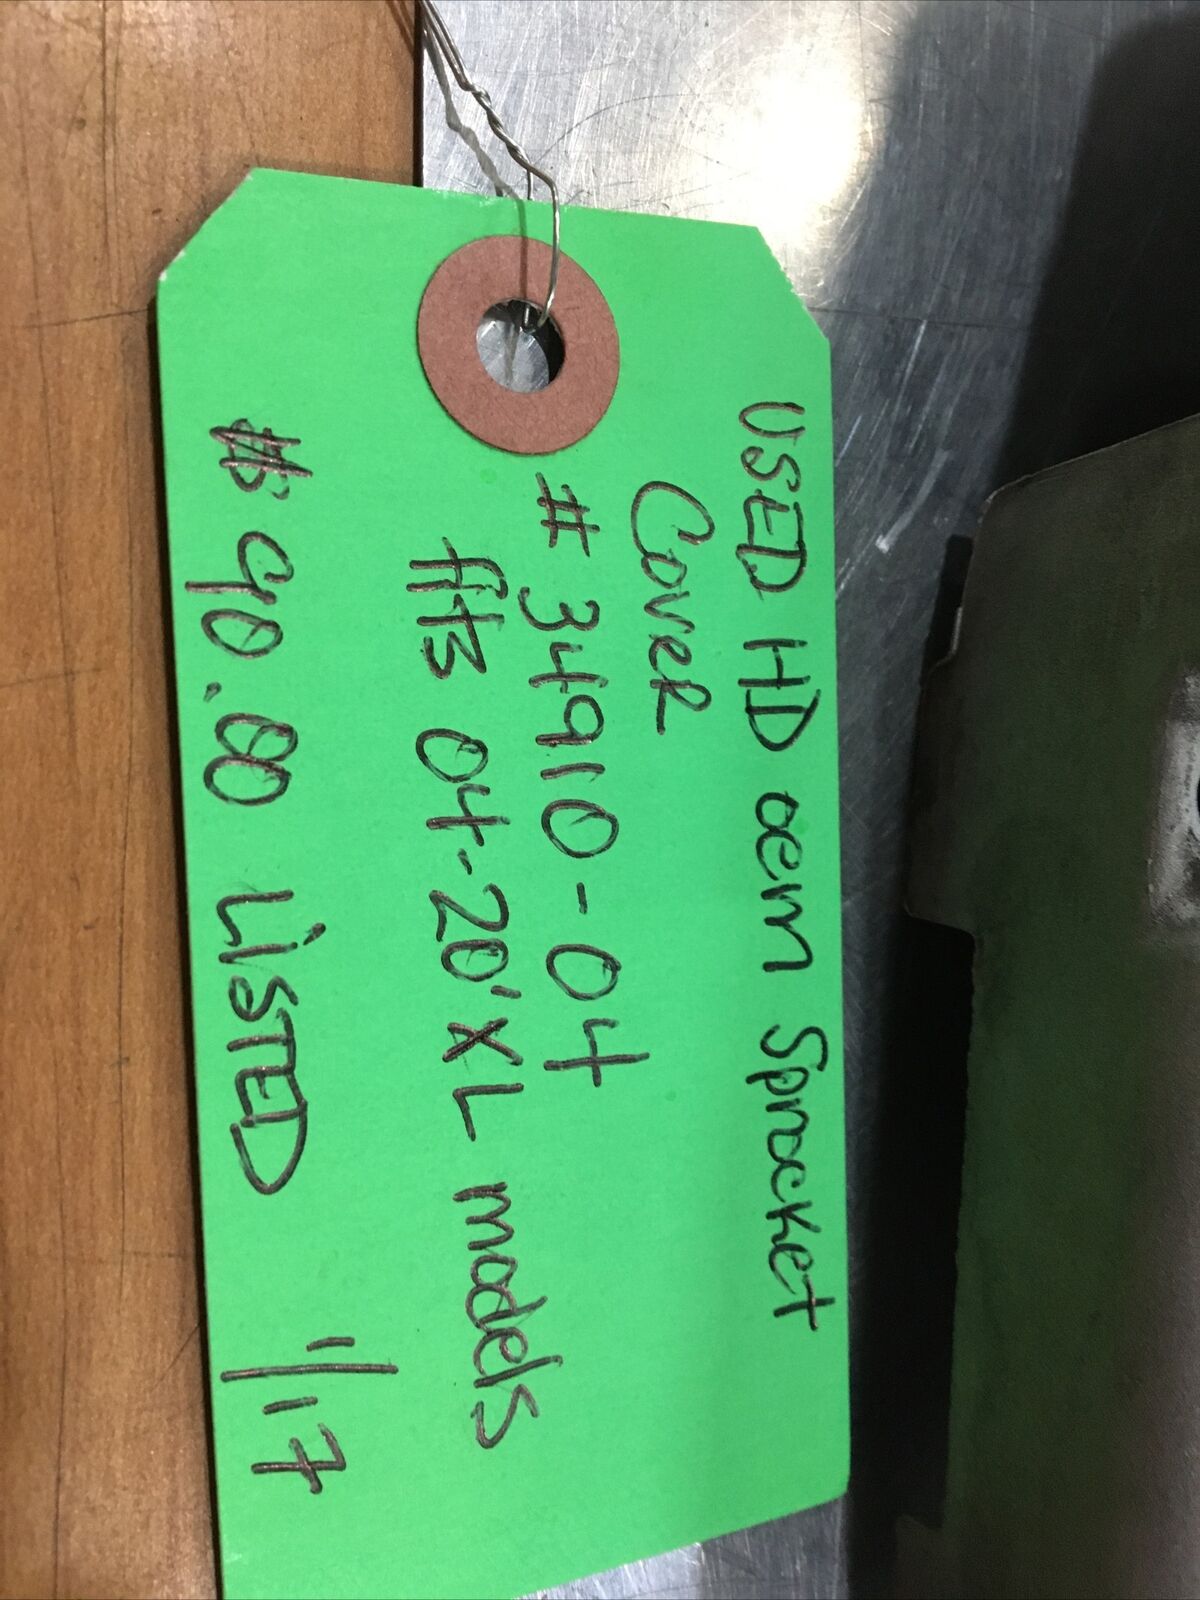 USED HD oem Sprocket
Cover
# 34910-04
fits 04-20' XL models
$ 90.00 LiSTED 1/17